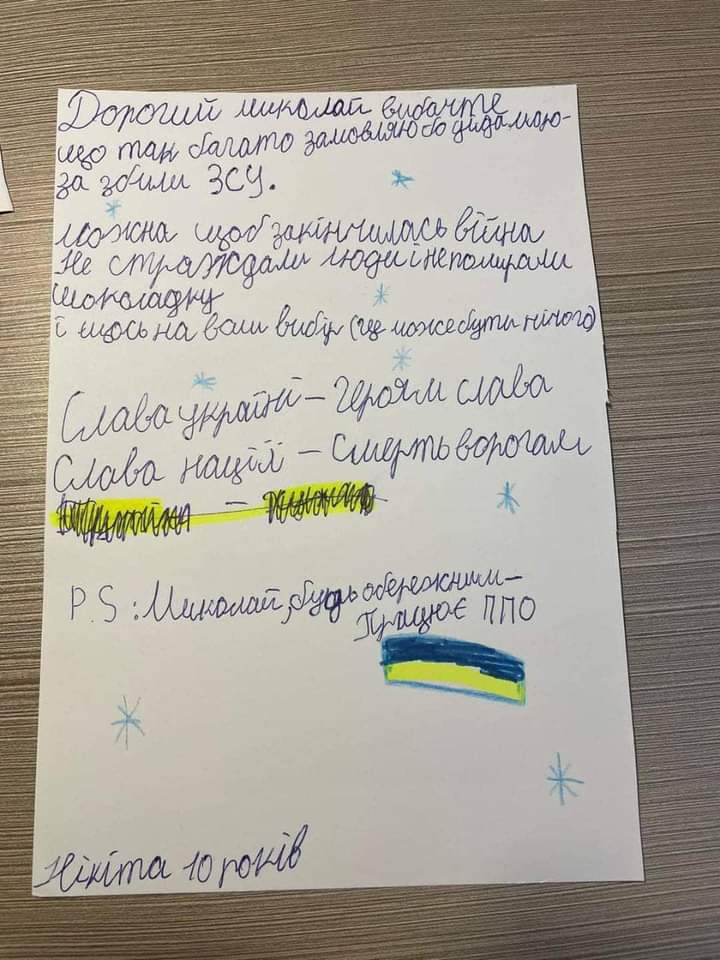 Дорогий миколай вибачте
що так багато замовляю бо діда мою-
за збили ЗСУ.
можна щоб закінчилась війна
Не страждали люди і не помирали
шоколадку
і щось на ваш вибір (це може бути нічого)
Слава україні – Героям слава
Слава нації – Смерть ворогам
P.S: Миколай, будь обережним –
Працює ППО
Нікіта 10 років